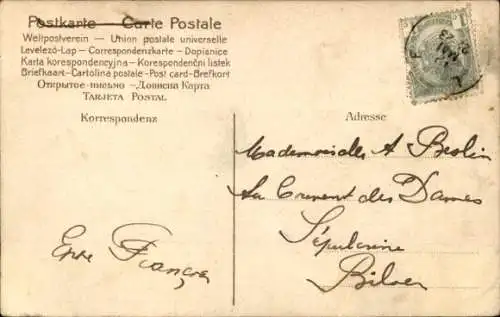 Postkarte — Carte Postale
Weltpostverein — Union postale universelle
Levelező-Lap — Correspondenzkarte — Dopisnice
Karta korespondencyjna — Korespondenční listek
Briefkaart — Cartolina postale — Post card — Brefkort
Открытое письмо — Дописна Карта
Tarjeta Postal
Korrespondenz
Adresse
Mademoiselle A
Au Couvent des Dames
Sépulcrine
Bilsen